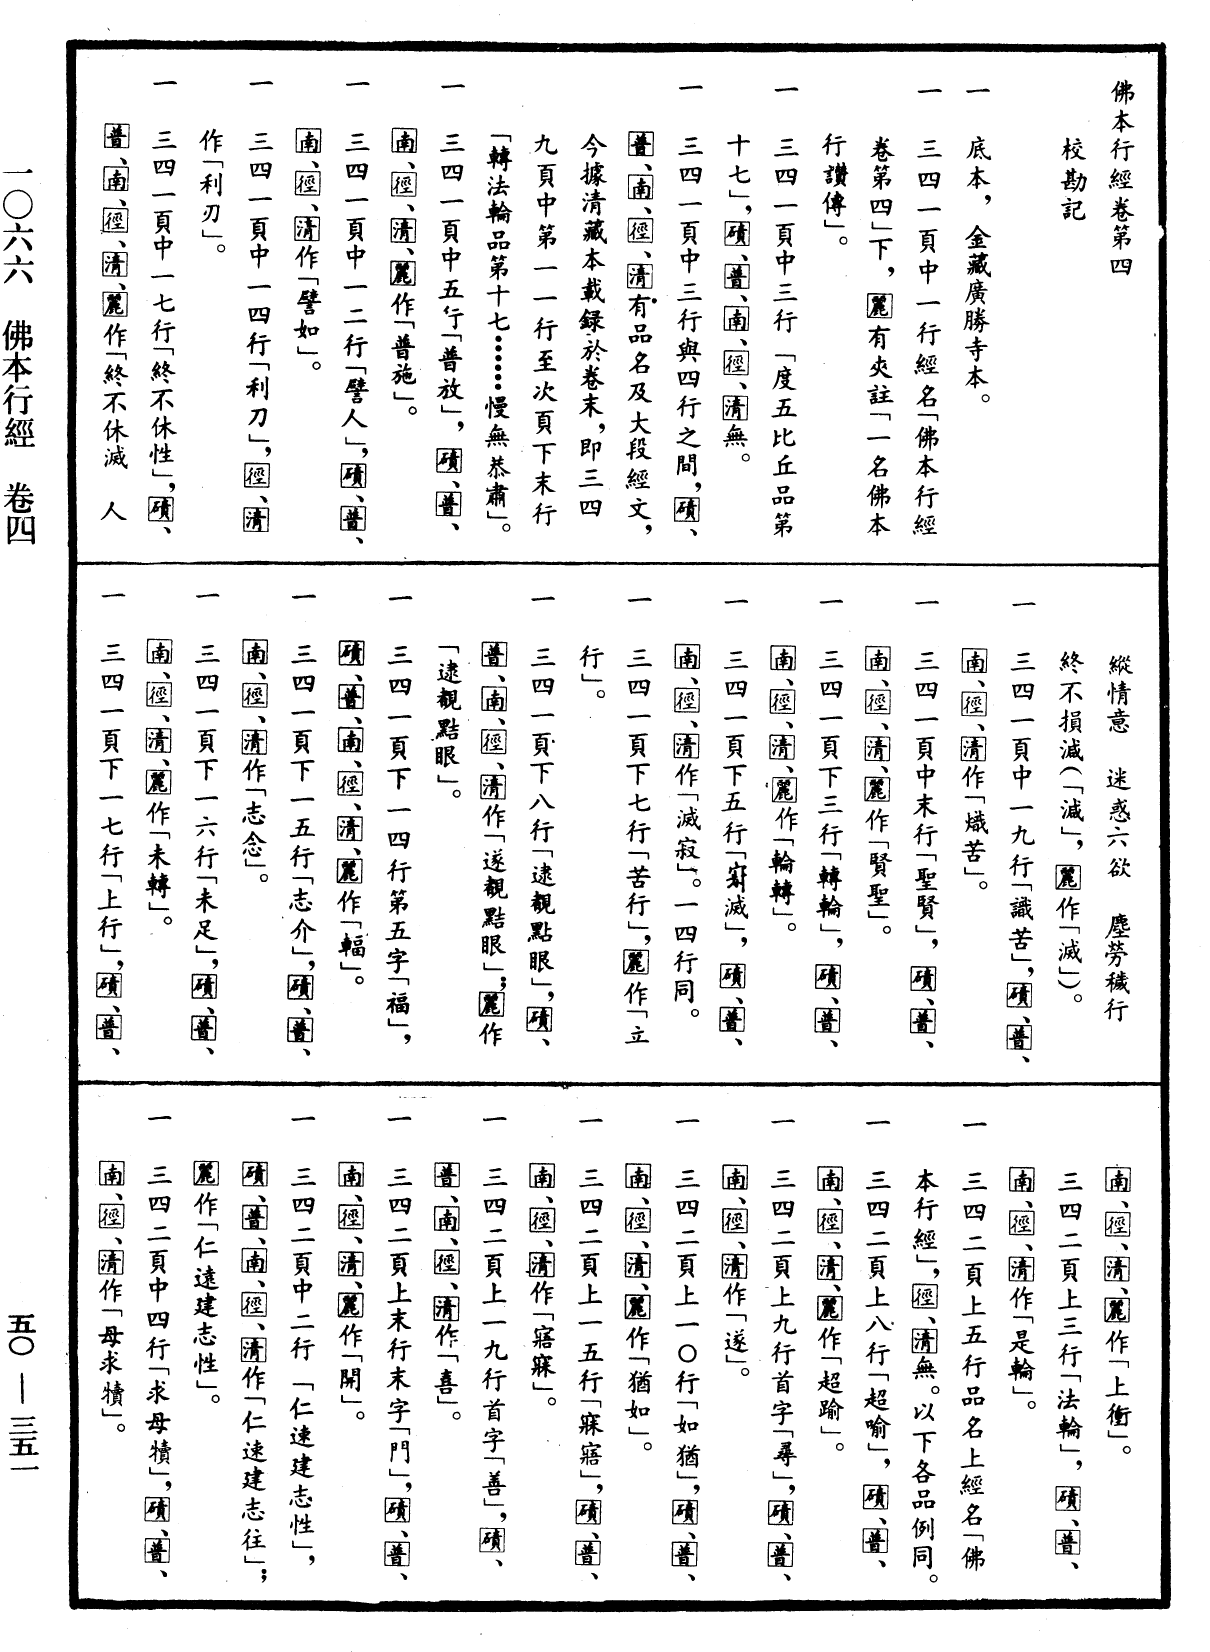 佛本行經卷第四
校勘記
一　底本，金藏廣勝寺本。
一　三四一頁中一行經名「佛本行經
卷第四」下，麗有夾註「一名佛本
行讚傳」。
一　三四一頁中三行「度五比丘品第
十七」，磧、普、南、徑、清無。
一　三四一頁中三行與四行之間，磧、
普、南、徑、清有品名及大段經文，
今據清藏本載録於卷末，即三四
九頁中第一一行至次頁下末行
「轉法輪品第十七……慢無恭肅」。
一　三四一頁中五行「普放」，磧、普、
南、徑、清、麗作「普施」。
一　三四一頁中一二行「譬人」，磧、普、
南、徑、清作「譬如」。
一　三四一頁中一四行「利刀」，徑、清
作「利刃」。
一　三四一頁中一七行「終不休性」，磧、
普、南、徑、清、麗作「終不休滅　人
縱情意　迷惑六欲　塵勞穢行
終不損減（「減」，麗作「滅」）。
一　三四一頁中一九行「識苦」，磧、普、
南、徑、清作「熾苦」。
一　三四一頁中末行「聖賢」，磧、普、
南、徑、清、麗作「賢聖」。
一　三四一頁下三行「轉輪」，磧、普、
南、徑、清、麗作「輪轉」。
一　三四一頁下五行「寂滅」，磧、普、
南、徑、清作「滅寂」。一四行同。
一　三四一頁下七行「苦行」，麗作「立
行」。
一　三四一頁下八行「逮覩點眼」，磧、
普、南、徑、清作「遂覩點眼」；麗作
「逮覩黠眼」。
一　三四一頁下一四行第五字「福」，
磧、普、南、徑、清、麗作「輻」。
一　三四一頁下一五行「志介」，磧、普、
南、徑、清作「志念」。
一　三四一頁下一六行「未足」，磧、普、
南、徑、清、麗作「未轉」。
一　三四一頁下一七行「上行」，磧、普、
南、徑、清、麗作「上衝」。
一　三四二頁上三行「法輪」，磧、普、
南、徑、清作「是輪」。
一　三四二頁上五行品名上經名「佛
本行經」，徑、清無。以下各品例同。
一　三四二頁上八行「超喻」，磧、普、
南、徑、清、麗作「超踰」。
一　三四二頁上九行首字「尋」，磧、普、
南、徑、清作「遂」。
一　三四二頁上一〇行「如猶」，磧、普、
南、徑、清、麗作「猶如」。
一　三四二頁上一五行「寐寤」，磧、普、
南、徑、清作「寤寐」。
一　三四二頁上一九行首字「善」，磧、
普、南、徑、清作「喜」。
一　三四二頁上末行末字「門」，磧、普、
南、徑、清、麗作「開」。
一　三四二頁中二行「仁速建志性」，
磧、普、南、徑、清作「仁速建志往」；
麗作「仁遠建志性」。
一　三四二頁中四行「求母犢」，磧、普、
南、徑、清作「母求犢」。
一〇六六　佛本行經　卷四
五〇——三五一